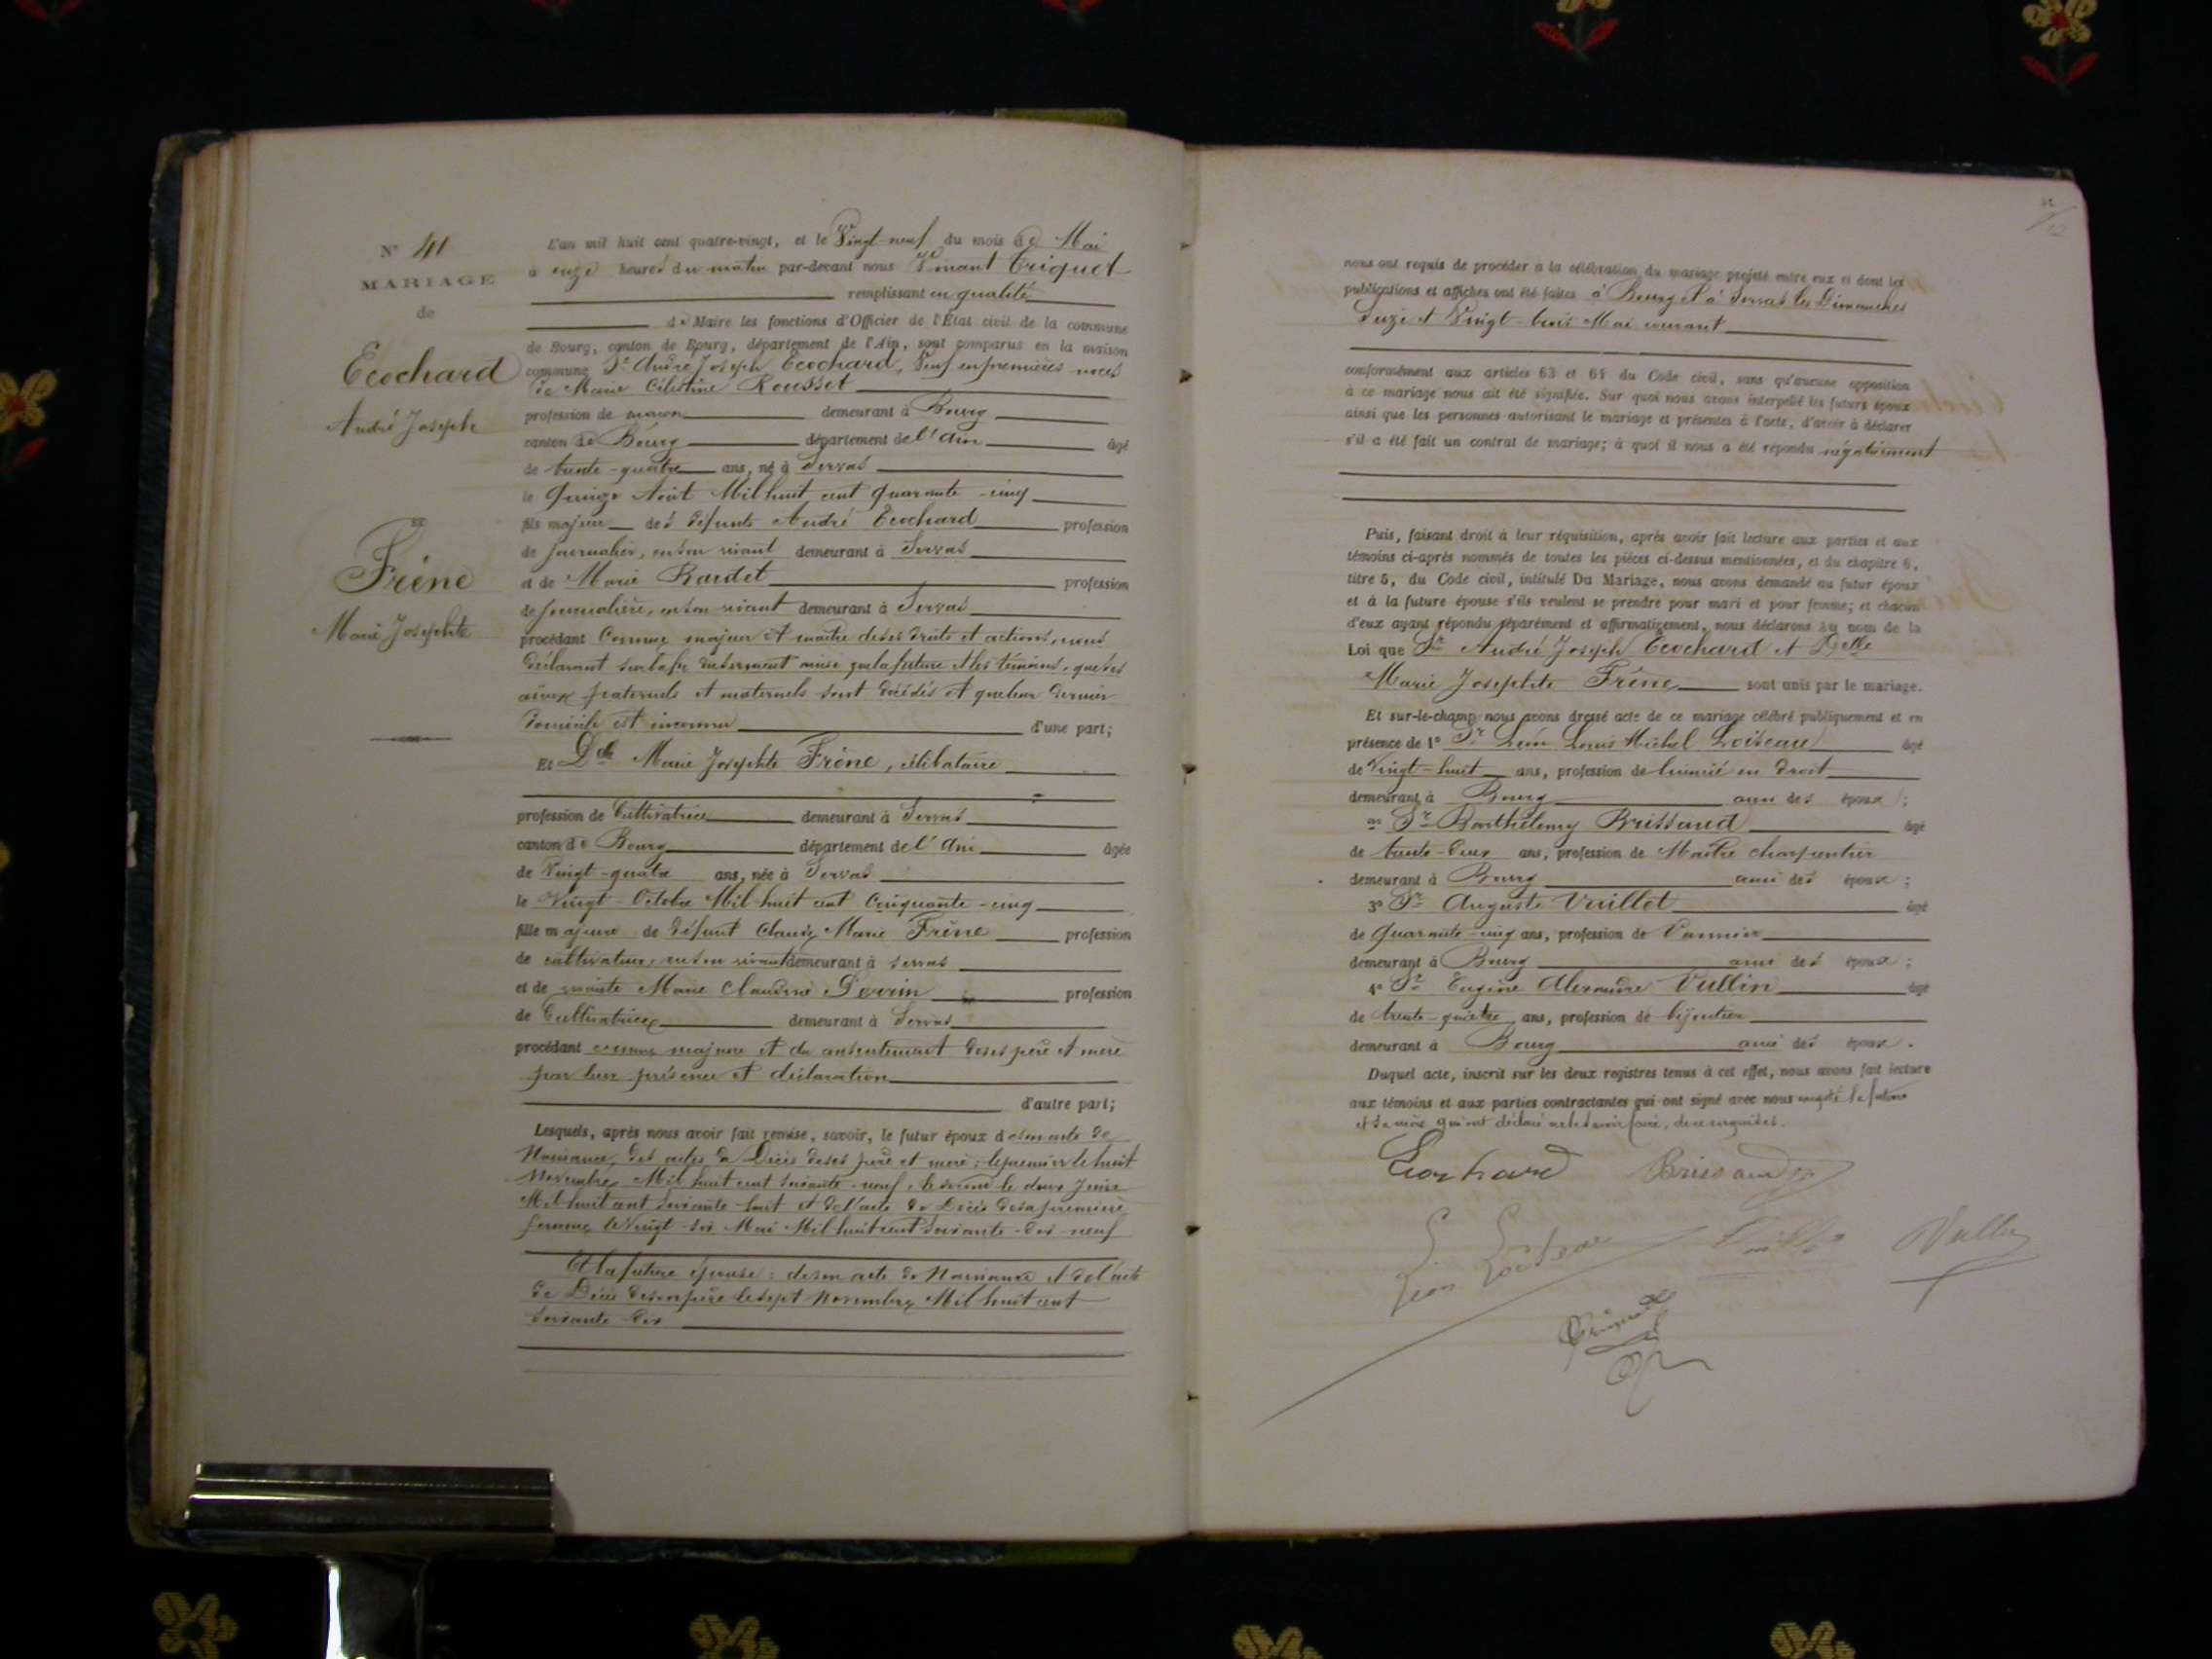 N° 41
MARIAGE
de
Ecochard
André Joseph
Frêne
Marie Josephte
L'an mil huit cent quatre-vingt, et le Vingt-neuf du mois de Mai
à onze heures du matin par-devant nous Triquet
remplissant en qualité
de Maire les fonctions d'Officier de l'État civil de la commune
de Bourg, canton de Bourg, département de l'Ain, sont comparus en la maison
commune Sr André Joseph Ecochard, Veuf en premières noces
de Marie Célestine Rousset
profession de maçon demeurant à Bourg
canton de Bourg département de l'Ain âgé
de trente-quatre ans, né à Servas
le Quinze Août Mil huit cent quarante-cinq
fils majeur des défunts André Ecochard profession
de journalier, en son vivant demeurant à Servas
et de Marie Bardet profession
de journalière, en son vivant demeurant à Servas
procédant comme majeur et maître de ses droits et actions, nous
déclarant sur la foi du serment ainsi que la future et les témoins, que ses
aïeux paternels et maternels sont décédés et que leur dernier
domicile est inconnu d'une part;
Et Dlle Marie Josephte Frêne, célibataire
profession de Cultivatrice demeurant à Servas
canton de Bourg département de l'Ain âgée
de Vingt-quatre ans, née à Servas
le Vingt Octobre Mil huit cent Cinquante-cinq
fille majeure de défunt Claude Marie Frêne profession
de cultivateur, en son vivant demeurant à Servas
et de Marie Claudine profession
de Cultivatrice demeurant à Servas
procédant comme majeure et du consentement de ses père et mère
par leur présence et déclaration
d'autre part;
Lesquels, après nous avoir fait remise, savoir, le futur époux de son acte de
Naissance, des actes de Décès de ses père et mère : le premier le huit
Novembre Mil huit cent soixante-neuf, le second le deux Juin
Mil huit cent soixante-huit et de l'acte de Décès de sa première
femme le Vingt-six Mai Mil huit cent soixante-dix-neuf
Et la future épouse : de son acte de Naissance et de l'acte
de Décès de son père le sept Novembre Mil huit cent
soixante-dix
nous ont requis de procéder à la célébration du mariage projeté entre eux et dont les
publications et affiches ont été faites à Bourg et à Servas les Dimanches
Seize et Vingt-trois Mai courant
conformément aux articles 63 et 64 du Code civil, sans qu'aucune opposition
à ce mariage nous ait été signifiée. Sur quoi nous avons interpellé les futurs époux
ainsi que les personnes autorisant le mariage et présentes à l'acte, d'avoir à déclarer
s'il a été fait un contrat de mariage; à quoi il nous a été répondu négativement
Puis, faisant droit à leur réquisition, après avoir fait lecture aux parties et aux
témoins ci-après nommés de toutes les pièces ci-dessus mentionnées, et du chapitre 6,
titre 5, du Code civil, intitulé Du Mariage, nous avons demandé au futur époux
et à la future épouse s'ils veulent se prendre pour mari et pour femme; et chacun
d'eux ayant répondu séparément et affirmativement, nous déclarons au nom de la
Loi que Sr André Joseph Ecochard et Delle
Marie Josephte Frêne sont unis par le mariage.
Et sur-le-champ nous avons dressé acte de ce mariage célébré publiquement et en
présence de 1° Sr Léon Louis Michel Loiseau âgé
de Vingt-huit ans, profession de licencié en droit
demeurant à Bourg ami des époux ;
2° Sr Barthélemy Brissaud âgé
de trente-deux ans, profession de Maître charpentier
demeurant à Bourg ami des époux ;
3° Sr Auguste Vuillot âgé
de Quarante-cinq ans, profession de Vannier
demeurant à Bourg ami des époux ;
4° Sr Eugène Alexandre Vullin âgé
de trente-quatre ans, profession de bijoutier
demeurant à Bourg ami des époux .
Duquel acte, inscrit sur les deux registres tenus à cet effet, nous avons fait lecture
aux témoins et aux parties contractantes qui ont signé avec nous excepté la future
et sa mère qui ont déclaré ne le savoir faire, de ce requises.
Ecochard Brissaud
Léon Loiseau Vullin